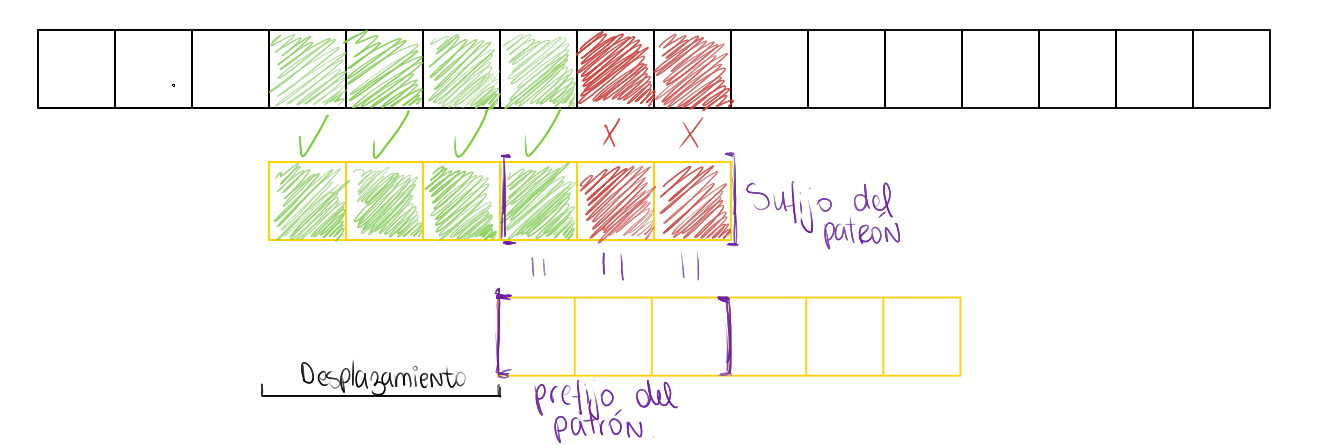 Sufijo del
patrón
Desplazamiento
prefijo del
patrón.